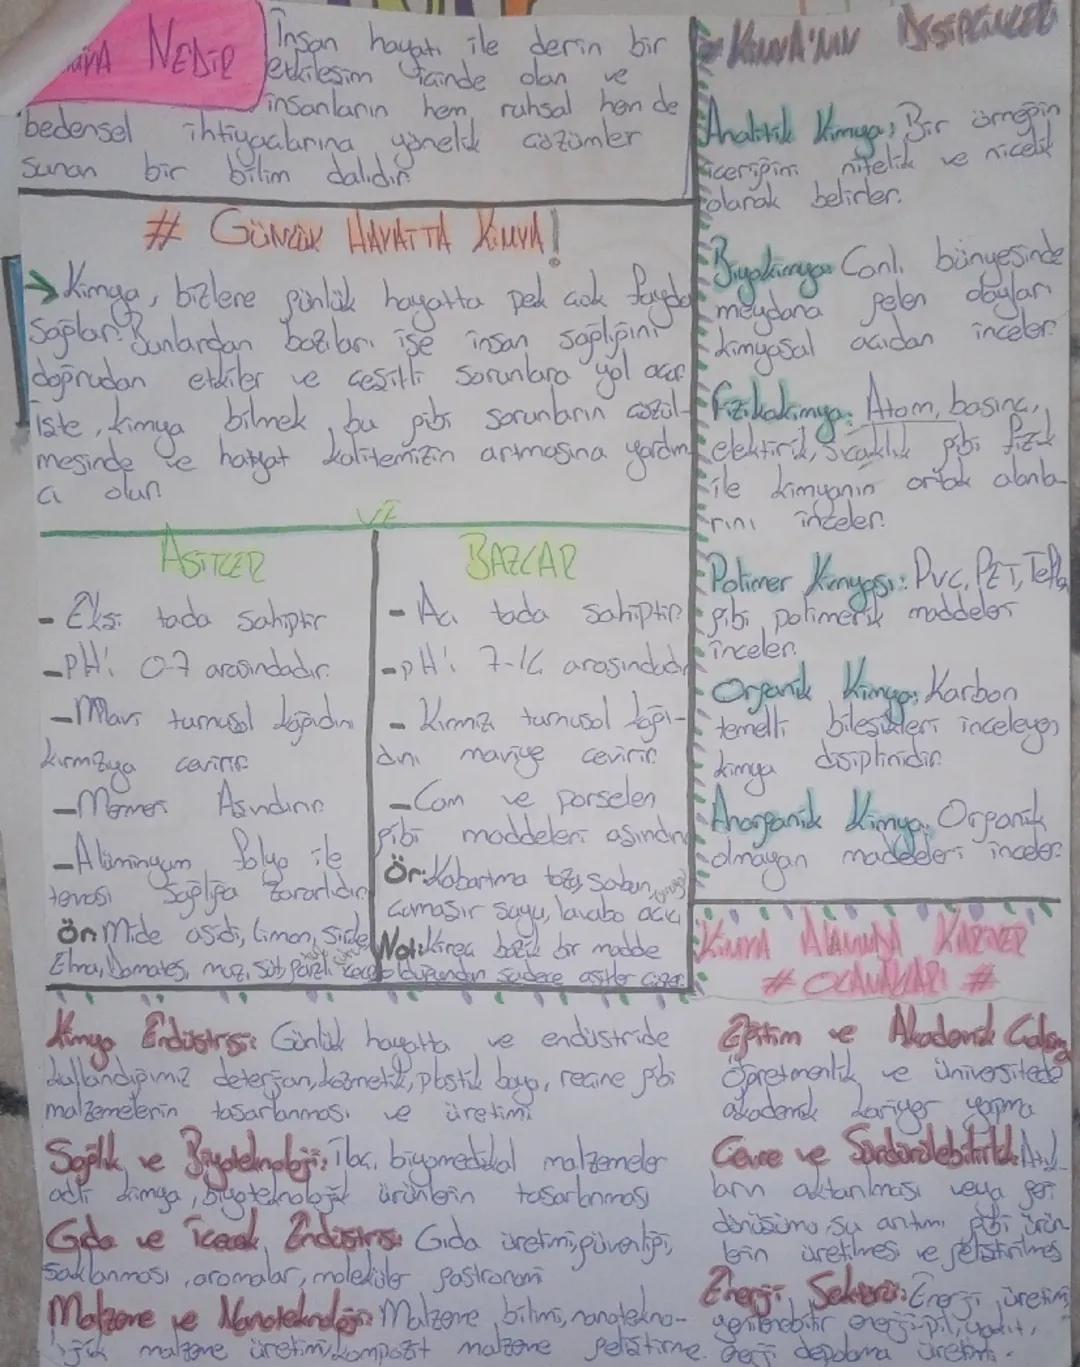 NEDİR
İnsan hayatı ile derin bir
etkileşim içinde olan ve
insanların hem ruhsal hem de
bedensel ihtiyaçlarına yönelik çözümler
sunan bir bilim dalıdır.
# GÜNLÜK HAYATTA KİMYA!
→ Kimya, bizlere günlük hayatta pek çok fayda
sağlar. Bunlardan bazıları ise insan sağlığını
doğrudan etkiler ve çeşitli sorunlara yol açar.
İşte, kimya bilmek, bu gibi sorunların çözül-
mesinde ve hayat kalitemizin artmasına yardım
cı olur.
VE
ASİTLER
- Ekşi tada sahiptir
- pH: 0-7 arasındadır.
- Mavi turnusol kağıdını
kırmızıya çevirir.
- Mermeri Aşındırır.
- Alüminyum folyo ile
teması sağlığa zararlıdır.
Ör: Mide asidi, Limon, Sirke
Elma, Domates, muz, süt,
BAZLAR
- Acı tada sahiptir.
- pH: 7-14 arasındadır
- Kırmızı turnusol kağı-
dını maviye çevirir.
- Cam ve porselen
gibi maddeleri aşındırır
Ör: Kabartma tozu, Sabun,
Çamaşır suyu, lavabo açıcı
Not: Kireç bazik bir madde
olduğundan sadece asitler çözer.
# KİMYA'NIN DİSİPLİNLERİ
Analitik Kimya: Bir örneğin
içeriğini nitelik ve nicelik
olarak belirler.
Biyokimya: Canlı bünyesinde
meydana gelen olayları
kimyasal açıdan inceler.
Fizikokimya: Atom, basınç,
elektirik, Sıcaklık gibi fizik
ile kimyanın ortak alanla-
rını inceler.
Polimer Kimyası: PVC, PET, Teflon
gibi polimerik maddeleri
inceler.
Organik Kimya: Karbon
temelli bileşikleri inceleyen
kimya disiplinidir.
Anorganik Kimya: Organik
olmayan maddeleri inceler.
KİMYA ALANINDA KARİYER
# OLANAKLARI #
Kimya Endüstrisi: Günlük hayatta ve endüstride
kullandığımız deterjan, kozmetik, plastik boya, reçine gibi
malzemelerin tasarlanması ve üretimi
Sağlık ve Biyoteknoloji: İlaç, biyomedikal malzemeler
adli kimya, biyoteknolojik ürünlerin tasarlanması
Gıda ve İçecek Endüstrisi: Gıda üretimi, güvenliği,
saklanması, aromalar, moleküler gastronomi
Malzeme ve Nanoteknoloji: Malzeme bilimi, nanotekno-
lojik malzeme üretimi, kompozit malzeme geliştirme.
Eğitim ve Akademik Çalışma
Öğretmenlik ve üniversitede
akademik kariyer yapma
Çevre ve Sürdürülebilirlik: Atık-
ların aktarılması veya geri
dönüşümü, su arıtımı gibi ürün-
lerin üretilmesi ve geliştirilmesi
Enerji Sektörü: Enerji üretimi,
yenilenebilir enerji-pil, yakıt,
enerji depolama üretimi.